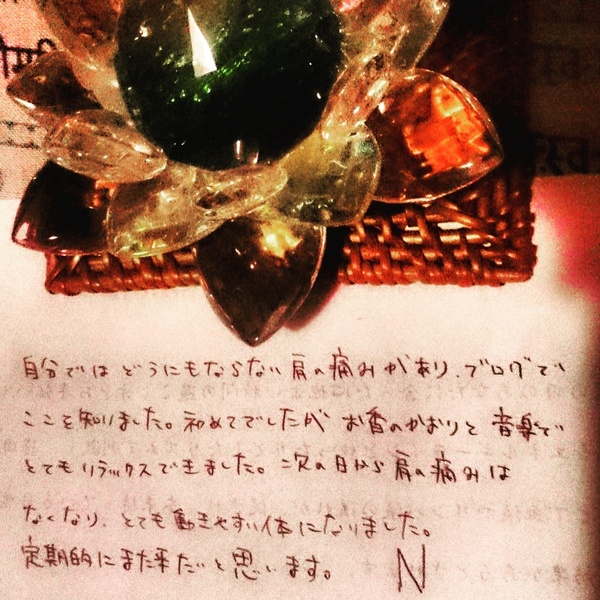 自分ではどうにもならない肩の痛みがあり、ブログで
ここを知りました。初めてでしたが お香のかおりと 音楽で
とてもリラックスできました。次の日から肩の痛みは
なくなり、とても動きやすい体になりました。
定期的にまた来たいと思います。 N